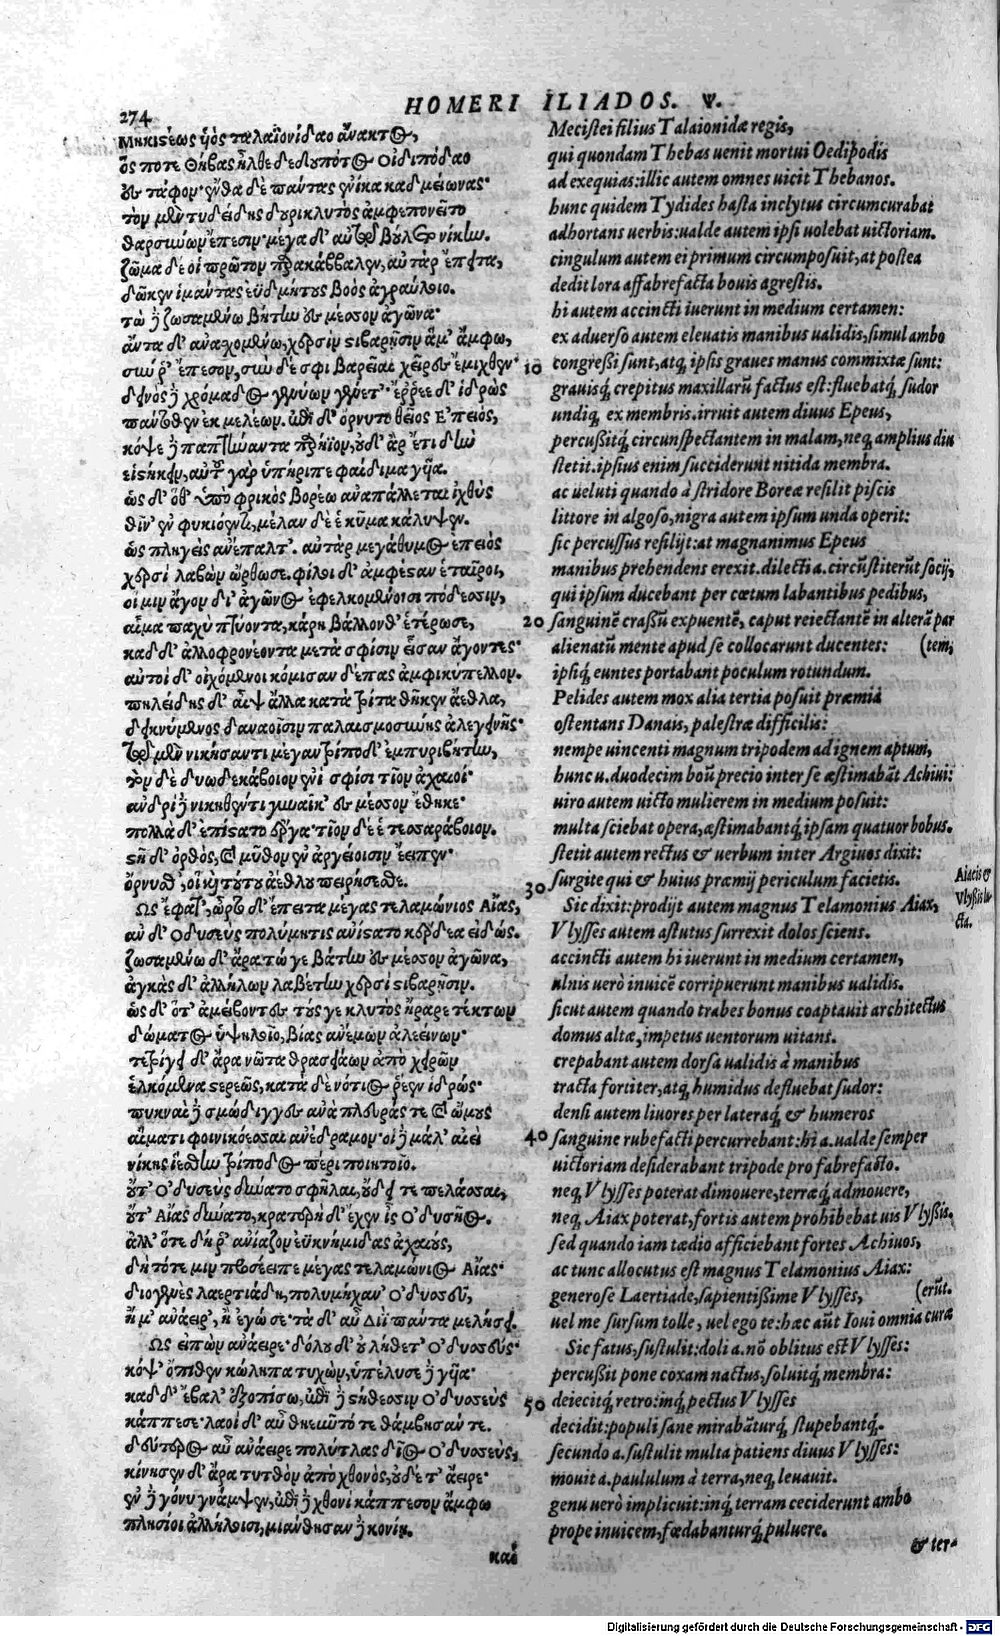 274
HOMERI ILIADOS. Ψ.
Μηκιϛέως ὑὸς ταλαϊονίδαο ἄνακτος,
ὅς ποτε Θήβας ἦλθε δεδουπότος Οἰδιπόδαο
ἐς τάφον· ἔνθα δὲ πάντας ἐνίκα καδμείωνας·
τὸν μὲν τυδείδης δουρικλυτὸς ἀμφεπονεῖτο
θαρσύνων ἔπεσιν· μέγα δ' αὐτῷ βούλετο νίκην.
ζῶμα δέ οἱ πρῶτον παρακάββαλεν, αὐτὰρ ἔπειτα,
δῶκεν ἱμάντας ἐϋδμήτους βοὸς ἀγραύλοιο.
τὼ δὲ ζωσαμένω βήτην ἐς μέσσον ἀγῶνα·
ἄντα δ' ἀναχομένω, χερσὶν ϛιβαρῇσιν ἅμ' ἄμφω,
σύν ῥ' ἔπεσον, σὺν δέ σφι βαρεῖαι χεῖρες ἔμιχθεν·
δεινὸς δὲ χρόμαδος γενύων γένετ'· ἔρρεε δ' ἱδρὼς
πάντοθεν ἐκ μελέων. ἐπὶ δ' ὄρνυτο θεῖος Ἐπειὸς,
κόψε δὲ παπτήναντα παρήϊον, οὐδ' ἂρ ἔτι δὴν
εἱστήκειν, αὐτοῦ γὰρ ὑπήριπε φαίδιμα γυῖα.
ὡς δ' ὅθ' ὑπὸ φρικὸς βορέω ἀναπάλλεται ἰχθὺς
θῖν' ἐν φυκιόεντι, μέλαν δέ ἑ κῦμα κάλυψεν.
ὣς πληγεὶς ἀνέπαλτ'. αὐτὰρ μεγάθυμος ἐπειὸς
χερσὶ λαβὼν ὤρθωσε. φίλοι δ' ἀμφέϛαν ἑταῖροι,
οἵ μιν ἄγον δι' ἀγῶνος ἐφελκομένοισι πόδεσσιν,
αἷμα παχὺ πτύοντα, κάρη βάλλονθ' ἑτέρωσε,
καδ δ' ἀλλοφρονέοντα μετὰ σφίσιν εἷσαν ἄγοντες·
αὐτοὶ δ' οἰχόμενοι κόμισαν δέπας ἀμφικύπελλον.
πηλείδης δ' αἶψ' ἄλλα κατὰ τρίτα θῆκεν ἄεθλα,
δεικνύμενος δαναοῖσιν παλαισμοσύνης ἀλεγεινῆς·
τῷ μὲν νικήσαντι μέγαν τρίποδ' ἐμπυριβήτην,
τὸν δὲ δυωδεκάβοιον ἐνὶ σφίσι τῖον ἀχαιοί·
ἀνδρὶ δὲ νικηθέντι γυναῖκ' ἐς μέσσον ἔθηκε·
πολλὰ δ' ἐπίϛατο ἔργα· τῖον δέ ἑ τεσσαράβοιον.
ϛῆ δ' ὀρθὸς, καὶ μῦθον ἐν ἀργείοισιν ἔειπεν·
ὄρνυσθ', οἳ καὶ τούτου ἀέθλου πειρήσεσθε.
Ὣς ἔφατ', ὦρτο δ' ἔπειτα μέγας τελαμώνιος Αἴας,
ἂν δ' Ὀδυσεὺς πολύμητις ἀνίϛατο κέρδεα εἰδώς.
ζωσαμένω δ' ἄρα τώ γε βάτην ἐς μέσσον ἀγῶνα,
ἀγκὰς δ' ἀλλήλων λαβέτην χερσὶ ϛιβαρῇσιν.
ὡς δ' ὅτ' ἀμείβοντες τούς γε κλυτὸς ἤραρε τέκτων
δώματος ὑψηλοῖο, βίας ἀνέμων ἀλεείνων·
τετρίγει δ' ἄρα νῶτα θρασειάων ἀπὸ χειρῶν
ἑλκόμενα ϛερεῶς, κατὰ δὲ νότιος ῥέεν ἱδρώς·
πυκναὶ δὲ σμώδιγγες ἀνὰ πλευράς τε καὶ ὤμους
αἵματι φοινικόεσσαι ἀνέδραμον· οἱ δὲ μάλ' αἰεὶ
νίκης ἱέσθην τρίποδος πέρι ποιητοῖο.
οὔτ' Ὀδυσεὺς δύνατο σφῆλαι, οὔδει τε πελάσσαι,
οὔτ' Αἴας δύνατο, κρατερὴ δ' ἔχεν ἲς Ὀδυσῆος.
ἀλλ' ὅτε δή ῥ' ἀνίαζον ἐϋκνήμιδας ἀχαιούς,
δὴ τότε μιν προσέειπε μέγας τελαμώνιος Αἴας·
διογενὲς λαερτιάδη, πολυμήχαν' Ὀδυσσεῦ,
ἤ μ' ἀνάειρ', ἢ ἐγὼ σέ· τὰ δ' αὖ Διῒ πάντα μελήσει.
Ὣς εἰπὼν ἀνάειρε· δόλου δ' οὐ λήθετ' Ὀδυσσεύς·
κόψ' ὄπιθεν κώληπα τυχὼν, ὑπέλυσε δὲ γυῖα·
καδ δ' ἔβαλ' ἐξοπίσω, ἐπὶ δὲ ϛήθεσσιν Ὀδυσσεὺς
κάππεσε· λαοὶ δ' αὖ θηεῦντό τε θάμβησάν τε.
δεύτερος αὖ ἀνάειρε πολύτλας δῖος Ὀδυσσεὺς,
κίνησεν δ' ἄρα τυτθὸν ἀπὸ χθονὸς, οὐδέ τ' ἄειρε·
ἐν δὲ γόνυ γνάμψεν, ἐπὶ δὲ χθονὶ κάππεσον ἄμφω
πλησίοι ἀλλήλοισι, μιάνθησαν δὲ κονίῃ.
καὶ
Mecistei filius Talaionidæ regis,
qui quondam Thebas uenit mortui Oedipodis
ad exequias: illic autem omnes uicit Thebanos.
hunc quidem Tydides hasta inclytus circumcurabat
adhortans uerbis: ualde autem ipsi uolebat uictoriam.
cingulum autem ei primum circumposuit, at postea
dedit lora affabrefacta bouis agrestis.
hi autem accincti iuerunt in medium certamen:
ex aduerso autem eleuatis manibus ualidis, simul ambo
10 congreßi sunt, atq; ipsis graues manus commixtæ sunt:
grauisq; crepitus maxillarũ factus est: fluebatq; sudor
undiq; ex membris. irruit autem diuus Epeus,
percußitq; circunspectantem in malam, neq; amplius diu
stetit. ipsius enim succiderunt nitida membra.
ac ueluti quando à stridore Boreæ resilit piscis
littore in algoso, nigra autem ipsum unda operit:
sic percussus resilijt: at magnanimus Epeus
manibus prehendens erexit. dilecti a. circũstiterũt socij,
qui ipsum ducebant per cœtum labantibus pedibus,
20 sanguinẽ crassũ expuentẽ, caput reiectantẽ in alterã par
alienatũ mente apud se collocarunt ducentes: (tem;
ipsiq; euntes portabant poculum rotundum.
Pelides autem mox alia tertia posuit præmia
ostentans Danais, palestræ difficilis:
nempe uincenti magnum tripodem ad ignem aptum,
hunc u. duodecim boũ precio inter se æstimabãt Achiui:
uiro autem uicto mulierem in medium posuit:
multa sciebat opera, æstimabantq; ipsam quatuor bobus.
stetit autem rectus & uerbum inter Argiuos dixit:
30 surgite qui & huius præmij periculum facietis.
Sic dixit: prodijt autem magnus Telamonius Aiax,
Vlysses autem astutus surrexit dolos sciens.
accincti autem hi iuerunt in medium certamen,
ulnis uerò inuicẽ corripuerunt manibus ualidis.
sicut autem quando trabes bonus coaptauit architectus
domus altæ, impetus uentorum uitans.
crepabant autem dorsa ualidis à manibus
tracta fortiter, atq; humidus defluebat sudor:
densi autem liuores per lateraq; & humeros
40 sanguine rubefacti percurrebant: hi a. ualde semper
uictoriam desiderabant tripode pro fabrefacto.
neq; Vlysses poterat dimouere, terræq; admouere,
neq; Aiax poterat, fortis autem prohibebat uis Vlyßis.
sed quando iam tædio afficiebant fortes Achiuos,
ac tunc allocutus est magnus Telamonius Aiax:
generose Laertiade, sapientißime Vlysses, (erũt.
uel me sursum tolle, uel ego te: hæc aũt Ioui omnia curæ
Sic fatus, sustulit: doli a. nõ oblitus est Vlysses:
percußit pone coxam nactus, soluitq; membra:
50 deiecitq; retro: inq; pectus Vlysses
decidit: populi sane mirabãturq; stupebantq;.
secundo a. sustulit multa patiens diuus Vlysses:
mouit a. paululum à terra, neq; leuauit.
genu uerò implicuit: inq; terram ceciderunt ambo
prope inuicem, fœdabanturq; puluere.
& ter-
Aiacis &
Vlyßis lu-
cta.
Digitalisierung gefördert durch die Deutsche Forschungsgemeinschaft - DFG